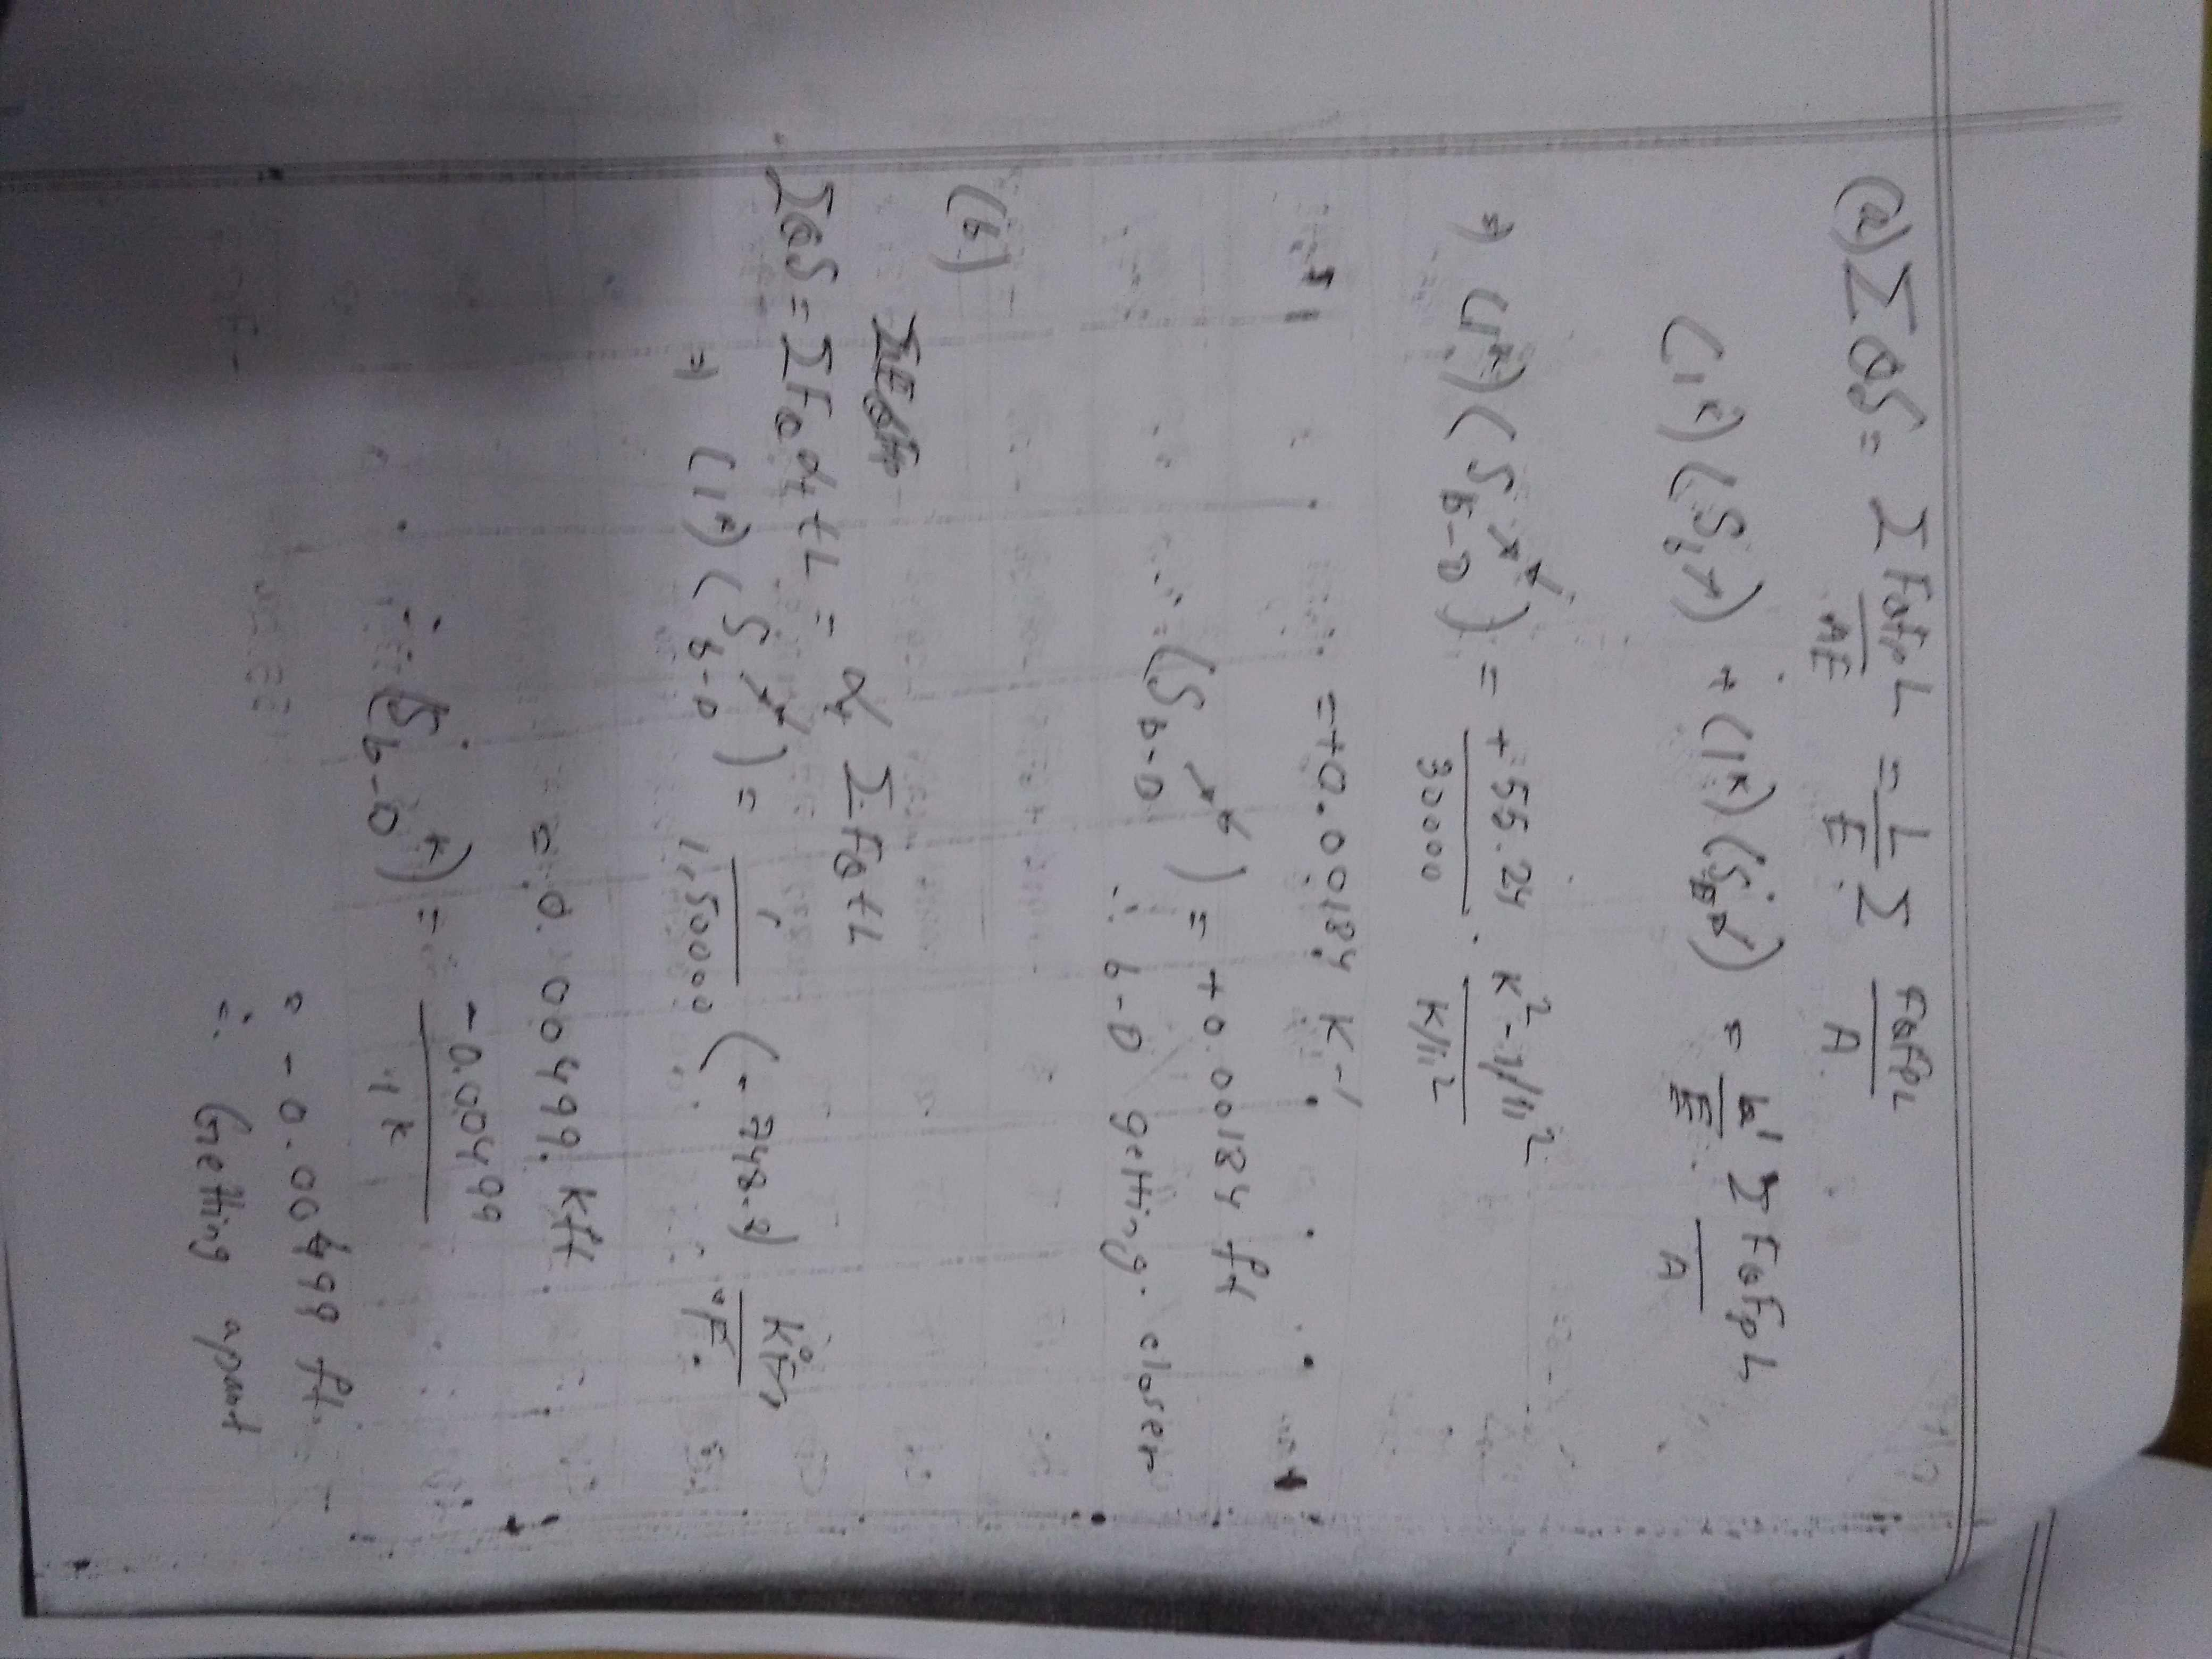 (a) ΣQδ = Σ FQFPL/AE = 1/E Σ FQFPL/A
(1ᵏ)(δb↗) + (1ᵏ)(δD↙) = 1/E Σ FQFPL/A
⇒ (1ᵏ)(δb-D ↗↙) = +55.24/30000 · K²-1/11²/K/11²
= +0.00184 K-1
(δb-D ↗↙) = +0.00184 ft
∴ b-D getting closer
(b)
ΣQδ = ΣFQ αt tL = αt ΣFQ tL
⇒ (1ᵏ)(δb-D ↗↙) = 1/1,50000 (-748.7) K°F-1/°F
= 0.00499 kft
∴ (δb-D) = -0.00499/1ᵏ
= -0.00499 ft.
∴ Getting apart